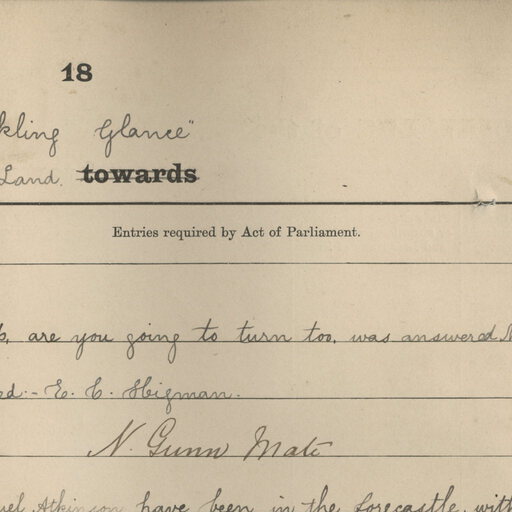 18
kling Glance"
Land. towards
Entries required by Act of Parliament.
are you going to turn too, was answered N
ed - E. C. Higman.
N. Gunn Mate
uel Atkinson have been in the forecastle, with